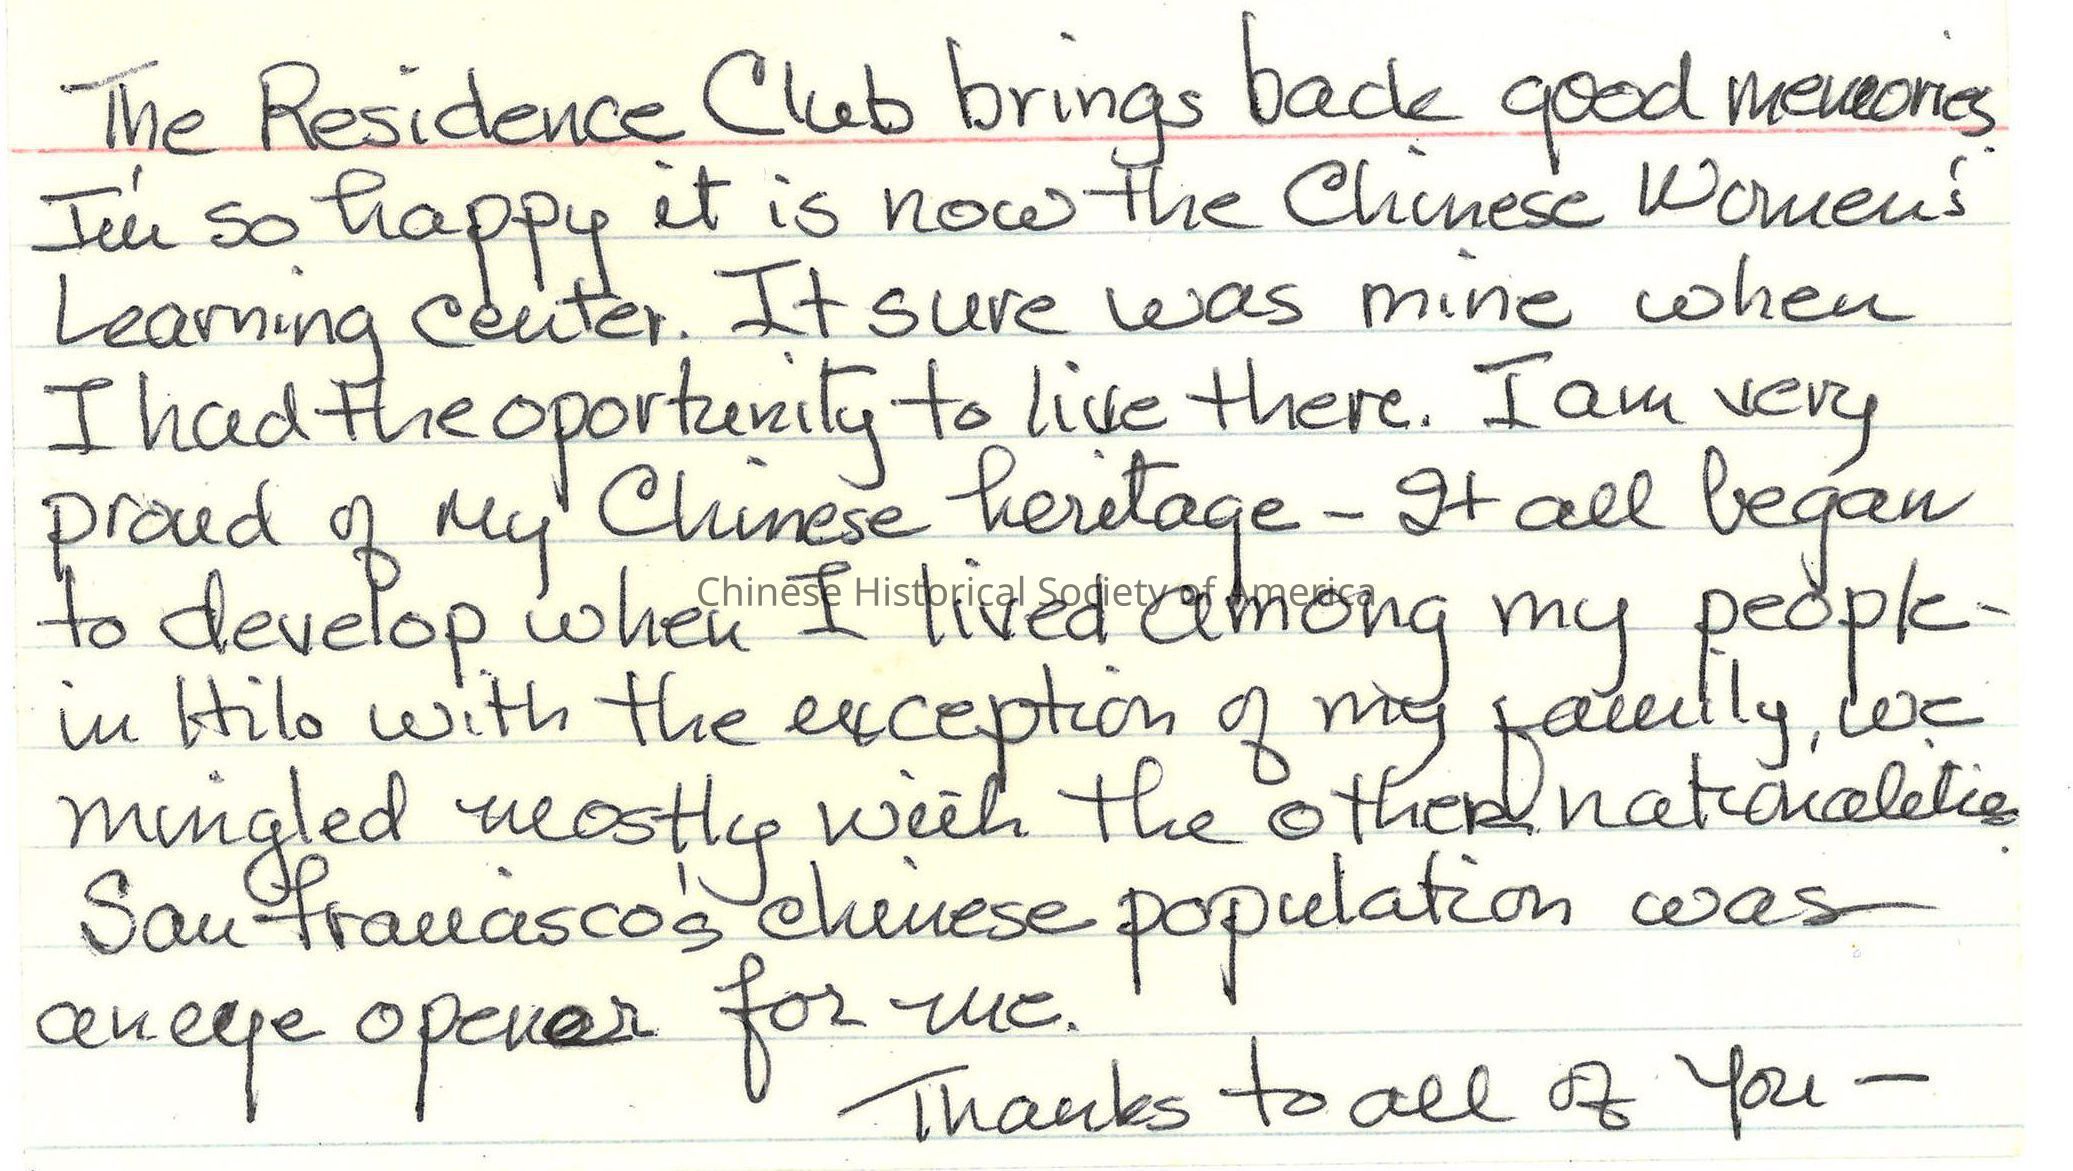 The Residence Club brings back good memories
I'm so happy it is now the Chinese Women's
Learning Center. It sure was mine when
I had the oportunity to live there. I am very
proud of my Chinese heritage - It all began
to develop when I lived among my people -
Chinese Historical Society of America
in Hilo with the exception of my family, we
mingled mostly with the other nationalities.
San Francisco's chinese population was
an eye opener for me.
Thanks to all of You -